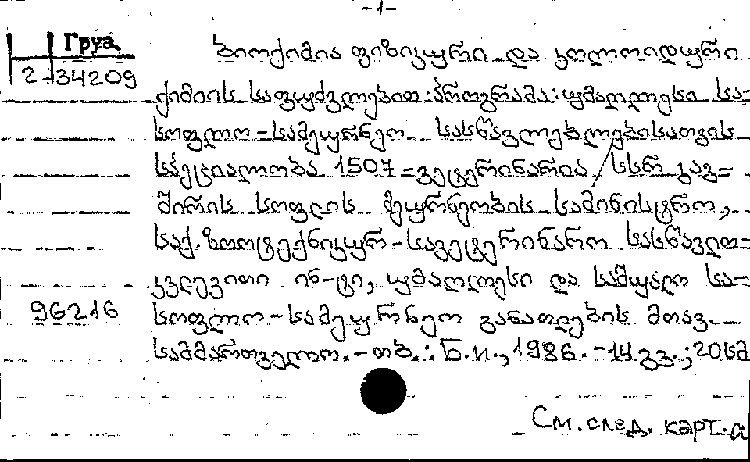 -1-
Груз.
2-34209
ბიოქიმია ფიზიკური და კოლოიდური
ქიმიის საფუძვლებით: პროგრამა: უმაღლესი სა-
სოფლო-სამეურნეო სასწავლებლებისათვის
სპეციალობა 1507 - ვეტერინარია / სსრ კავ-
შირის სოფლის მეურნეობის სამინისტრო,
საქ. ზოოტექნიკურ-სავეტერინარო სასწავლო-
კვლევითი ინ-ტი, უმაღლესი და საშუალო სა-
96216
სოფლო-სამეურნეო განათლების მთავ.
სამმართველო. - თბ.: Б.и., 1986. - 14 გვ.; 20სმ
См. след. карт.